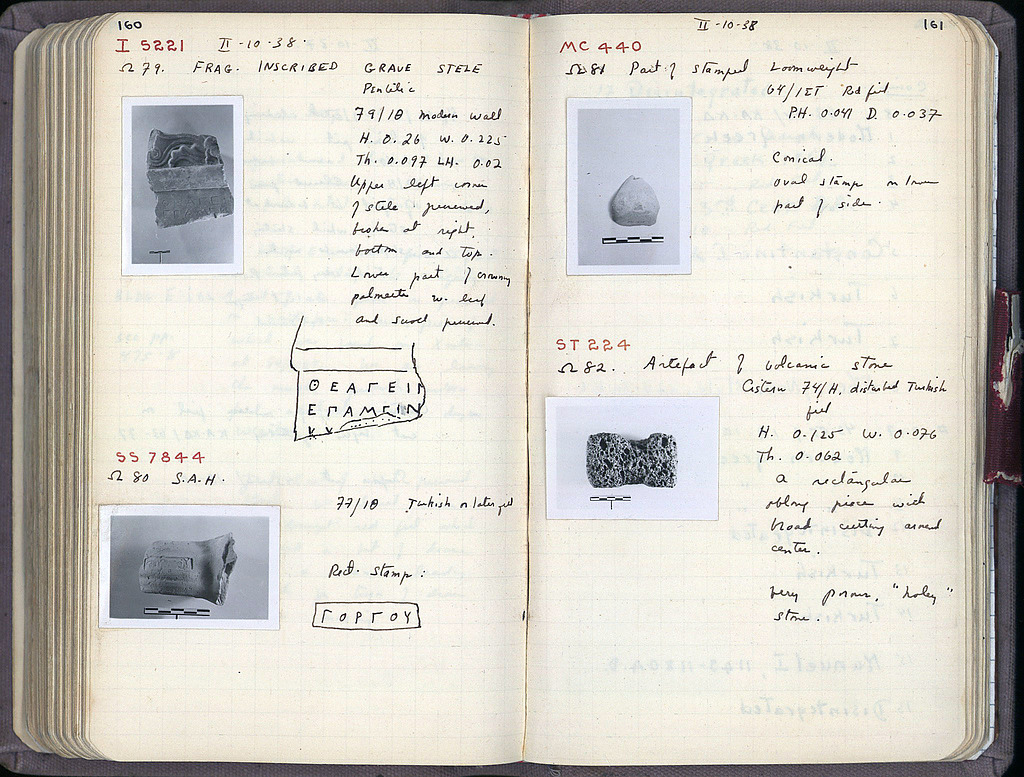 160
I 5221 II-10-38.
Ω 79. FRAG. INSCRIBED GRAVE STELE
Pentelic
79/ΙΘ modern wall
H. 0.26 W. 0.225
Th. 0.097 LH. 0.02
Upper left corner
of stele preserved,
broken at right,
bottom and top.
Lower part of crowning
palmette w. leaf
and scroll preserved.
ΘΕΑΓΕΙΙ
ΕΠΑΜΕΙΝ
SS 7844
Ω 80 S.A.H.
77/ΙΘ Turkish or later fill
Rect. stamp:
ΓΟΡΓΟΥ
II-10-38
161
MC 440
Ω 81 Part of stamped Loomweight
64/ΙΣΤ Rd fill
P.H. 0.041 D. 0.037
Conical.
oval stamp on lower
part of side.
ST 224
Ω 82. Artefact of volcanic stone
Cistern 74/H, disturbed Turkish
fill
H. 0.125 W. 0.076
Th. 0.062
a rectangular
oblong piece with
broad cutting around
center.
Very porous, "holey"
stone.